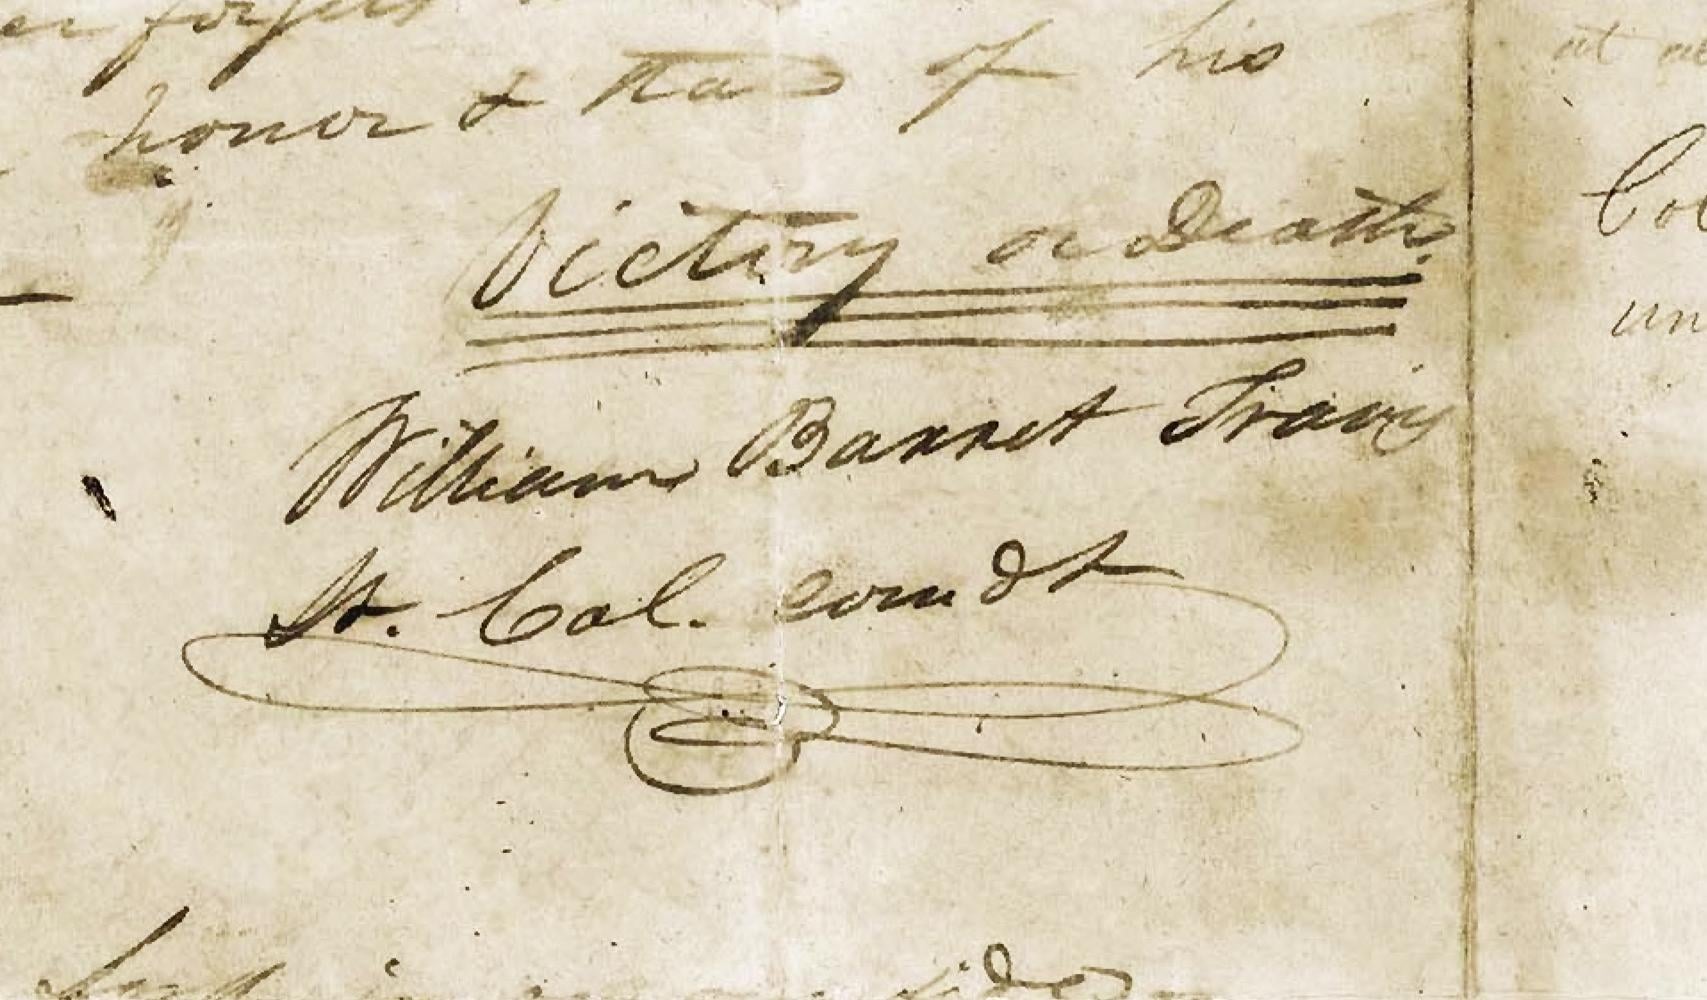 forgets
honor & that of his
Victory or Death.
William Barret Travis
Lt. Col. comdt
at
Col
un